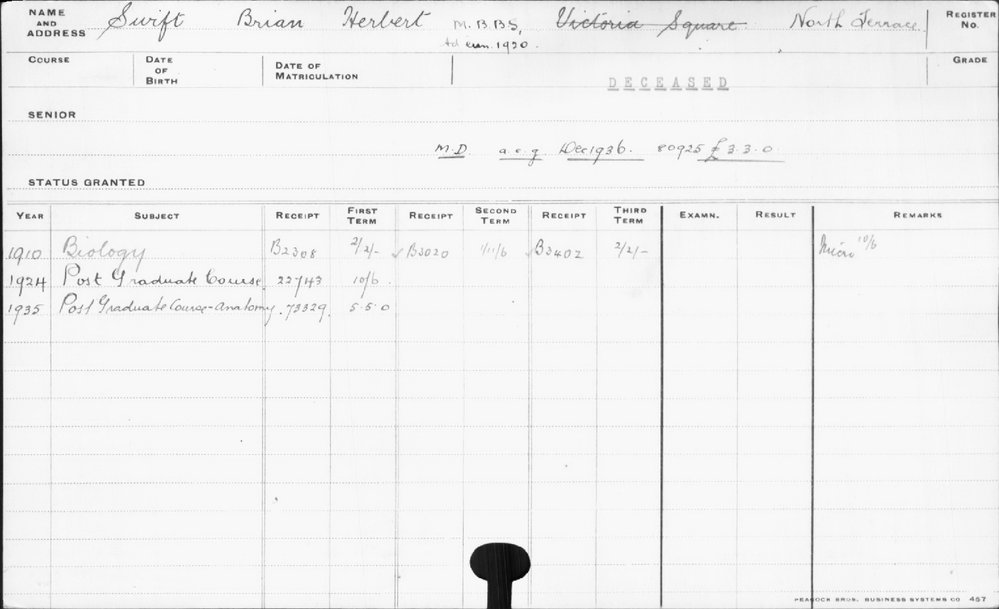 NAME AND ADDRESS Swift Brian Herbert M.B.B.S, Victoria Square North Terrace REGISTER No.
ad eun. 1920.
COURSE DATE OF BIRTH DATE OF MATRICULATION DECEASED GRADE
SENIOR
M.D a.e.g Dec 1936. 80925 £3.3.0
STATUS GRANTED
YEAR SUBJECT RECEIPT FIRST TERM RECEIPT SECOND TERM RECEIPT THIRD TERM EXAMN. RESULT REMARKS
1910 Biology B2308 2/2/- B3020 1/11/6 B3402 2/2/- Micro 10/6
1924 Post Graduate Course 22743 10/6
1935 Post Graduate Course-Anatomy. 73329. 5.5.0
PEACOCK BROS. BUSINESS SYSTEMS CO 457